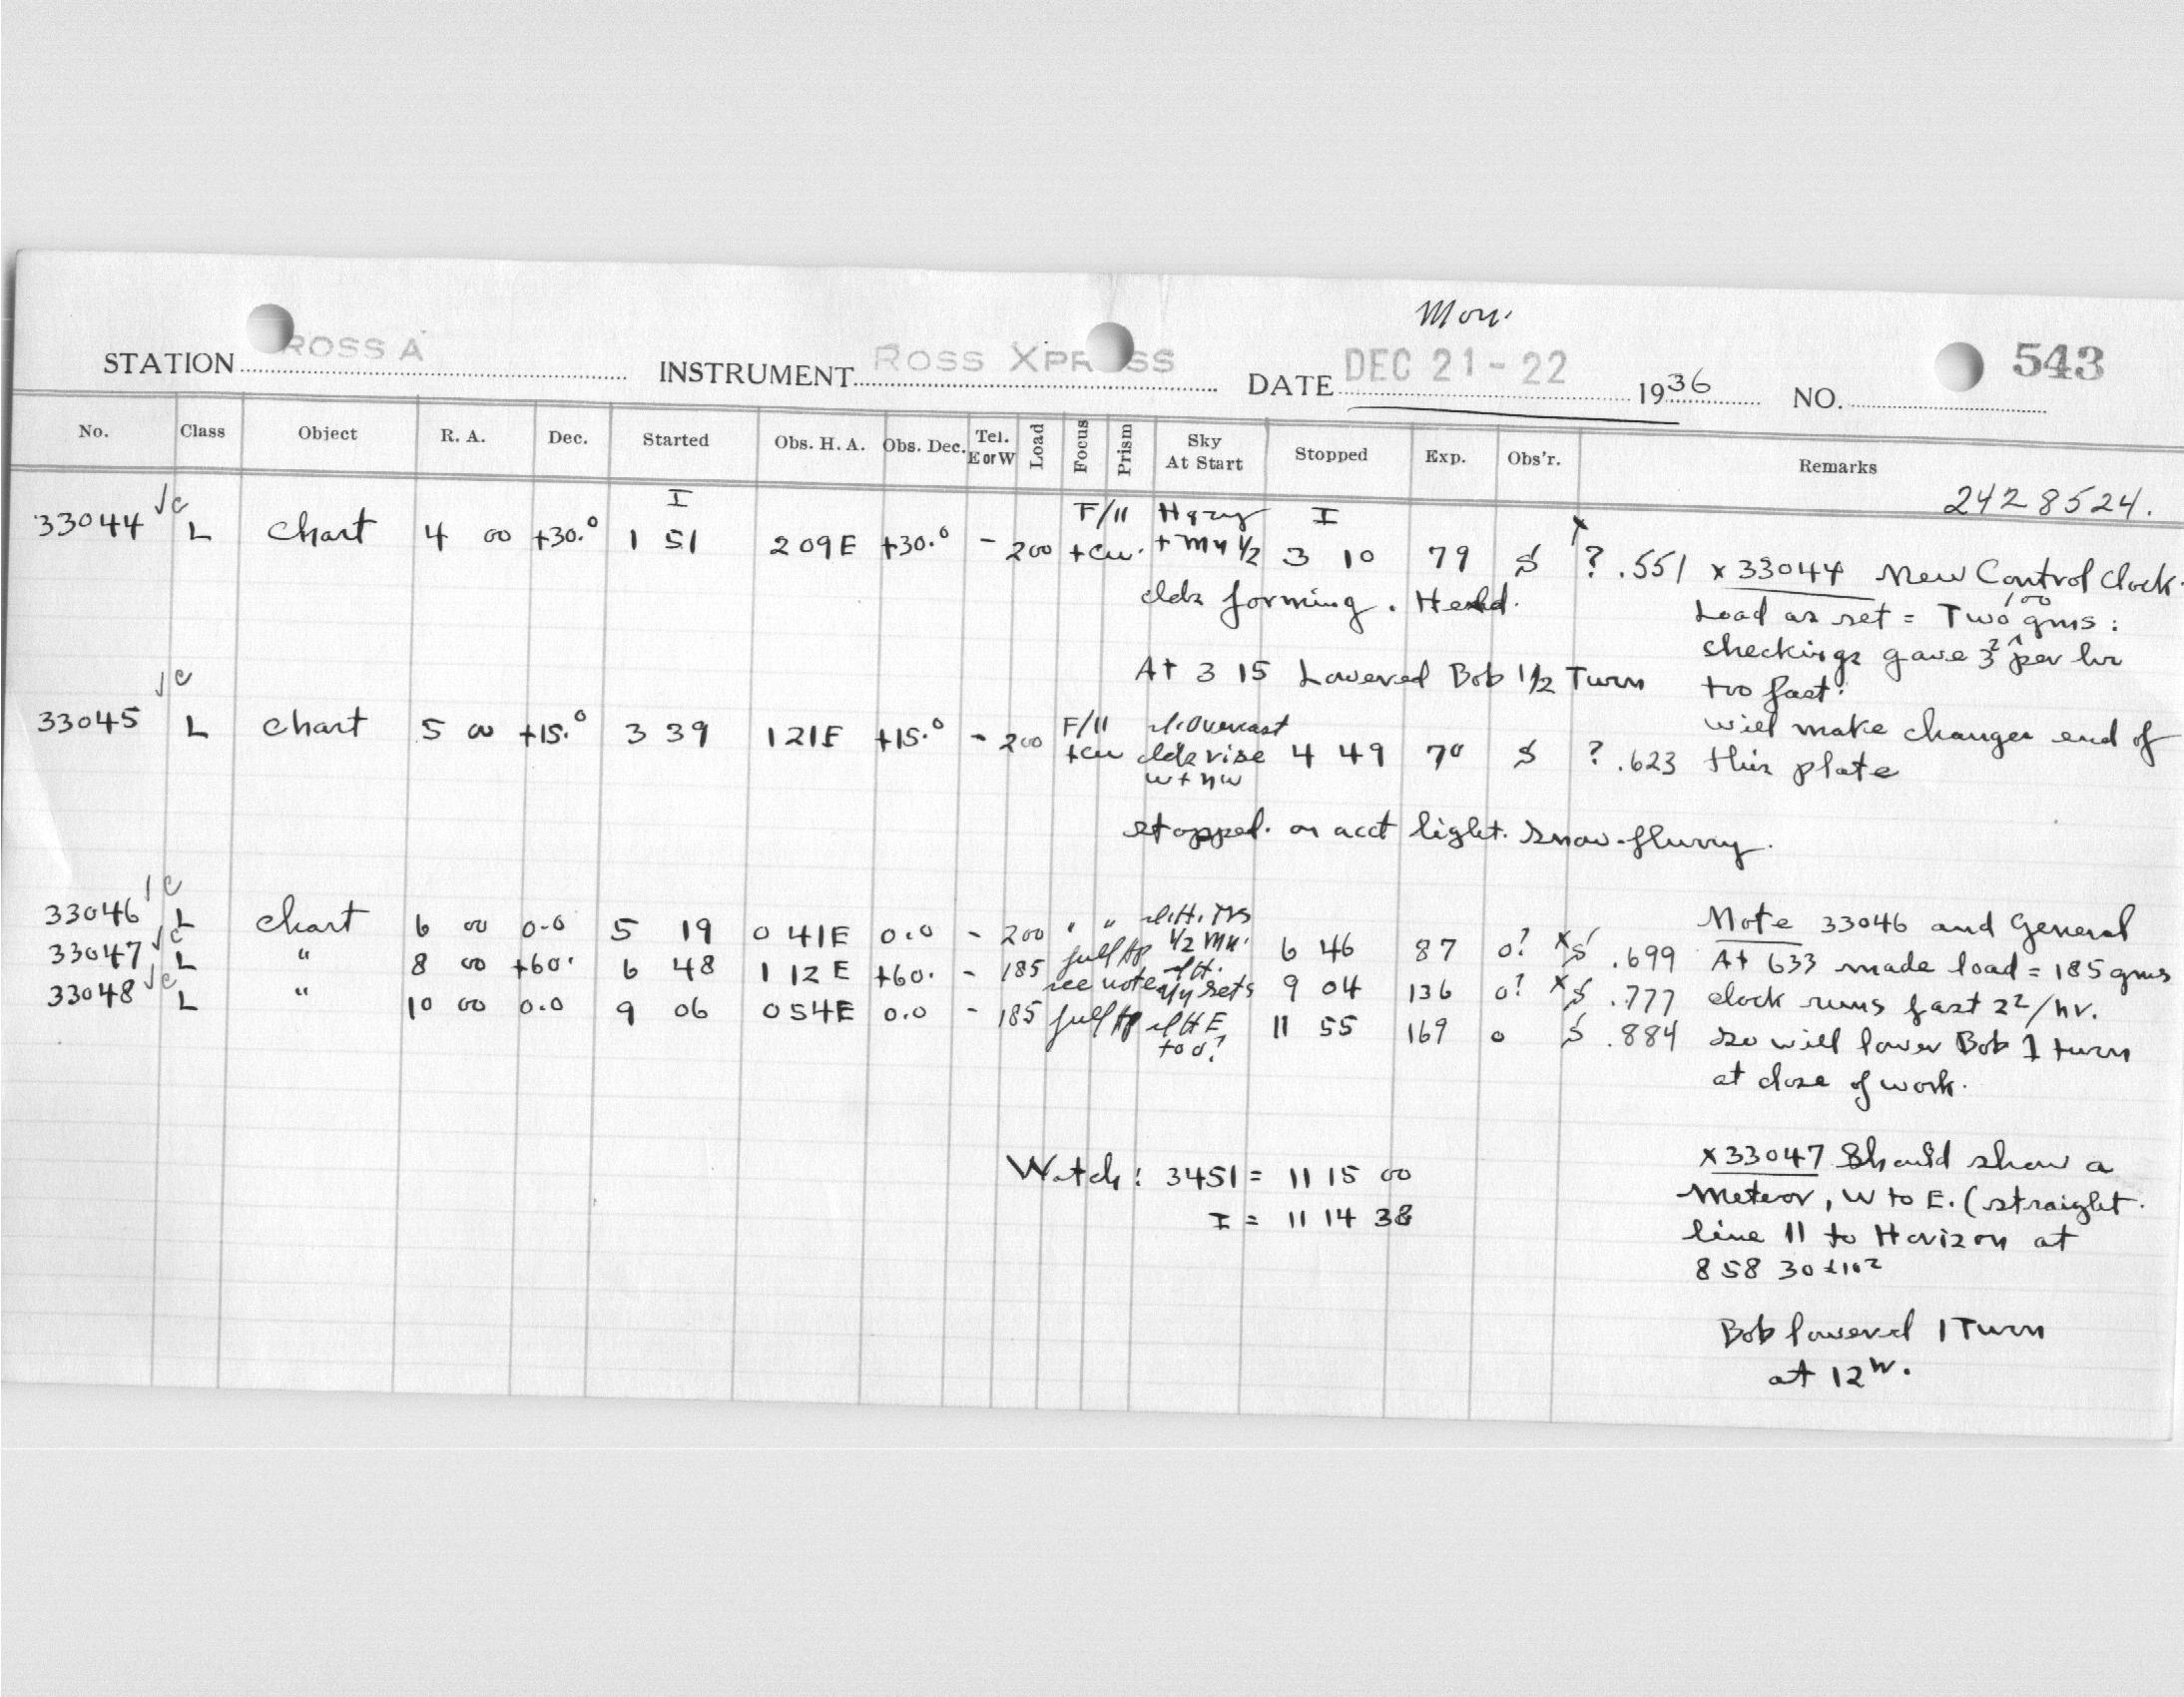 Mon.
STATION ROSS A INSTRUMENT ROSS XPRESS DATE DEC 21-22 1936 NO. 543
No. Class Object R. A. Dec. Started Obs. H. A. Obs. Dec. Tel. E or W Load Focus Prism Sky At Start Stopped Exp. Obs'r. Remarks
2428524.
33044 √c L Chart 4 00 +30.° I 1 51 2 09E +30.° - 200 F/11 +cw. Hazy + mn 1/2 I 3 10 79 S x ? .551 x 33044 New Control Clock.
clds forming. Load as set = Two 100 gms:
checkings gave 3² per hr
At 3 15 Lowered Bob 1 1/2 Turn too fast.
33045 √c L Chart 5 00 +15.° 3 39 1 21E +15.° - 200 F/11 +cw Overcast clds rise w + nw 4 49 70 S ? .623 will make changes end of
this plate
stopped. on acct light. Snow-flurry.
33046 √c L Chart 6 00 0.0 5 19 0 41E 0.0 - 200 " " 1/2 mn. 6 46 87 0? xS .699 Note 33046 and General
33047 √c L " 8 00 +60. 6 48 1 12E +60. - 185 full Ap see note sets 9 04 136 0? xS .777 At 6 33 made load = 185 gms
33048 √c L " 10 00 0.0 9 06 0 54E 0.0 - 185 full Ap E to 0? 11 55 169 0 S .884 clock runs fast 2²/hr.
So will lower Bob 1 turn
at close of work.
Watch: 3451 = 11 15 00
I = 11 14 38
x33047 Should show a
Meteor, W to E. (straight
line 11 to Horizon at
8 58 30 ±10²
Bob lowered 1 Turn
at 12